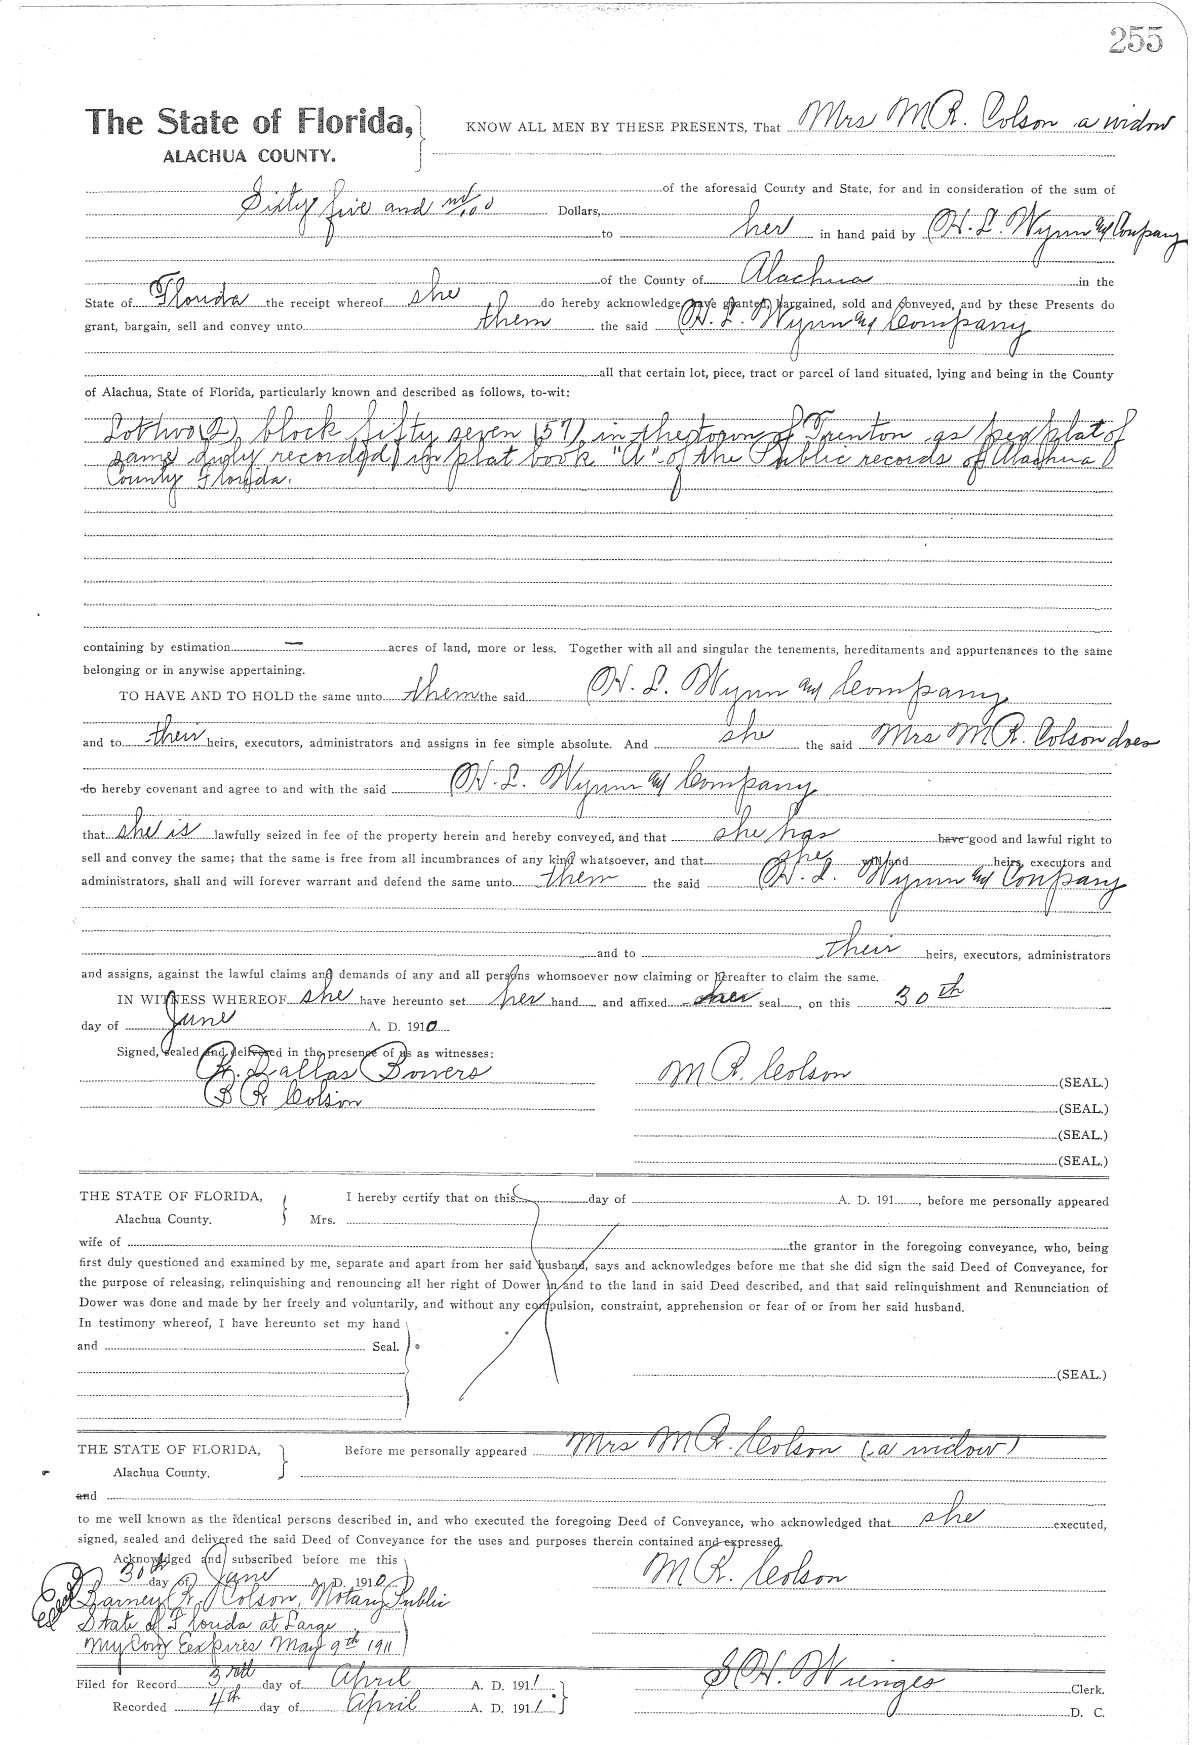 255
The State of Florida, KNOW ALL MEN BY THESE PRESENTS, That Mrs M R. Colson a widow
ALACHUA COUNTY.
of the aforesaid County and State, for and in consideration of the sum of
Sixty five and no/100 Dollars,
to her in hand paid by H. L. Wynn and Company
of the County of Alachua in the
State of Florida the receipt whereof she do hereby acknowledge, have granted, bargained, sold and conveyed, and by these Presents do
grant, bargain, sell and convey unto them the said H. L. Wynn and Company
all that certain lot, piece, tract or parcel of land situated, lying and being in the County
of Alachua, State of Florida, particularly known and described as follows, to-wit:
Lot two (2), block fifty seven (57) in the town of Trenton as per plat of
same duly recorded in plat book "A" of the Public records of Alachua
County Florida.
containing by estimation — acres of land, more or less. Together with all and singular the tenements, hereditaments and appurtenances to the same
belonging or in anywise appertaining.
TO HAVE AND TO HOLD the same unto them the said H. L. Wynn and Company
and to their heirs, executors, administrators and assigns in fee simple absolute. And she the said Mrs M R. Colson does
do hereby covenant and agree to and with the said H. L. Wynn and Company
that she is lawfully seized in fee of the property herein and hereby conveyed, and that she has have good and lawful right to
sell and convey the same; that the same is free from all incumbrances of any kind whatsoever, and that she will and heirs, executors and
administrators, shall and will forever warrant and defend the same unto them the said H. L. Wynn and Company
and to their heirs, executors, administrators
and assigns, against the lawful claims and demands of any and all persons whomsoever now claiming or hereafter to claim the same.
IN WITNESS WHEREOF she have hereunto set her hand and affixed her seal, on this 30th
day of June A. D. 1910
Signed, sealed and delivered in the presence of us as witnesses:
H. Dallas Bowers M R. Colson (SEAL.)
B R Colson (SEAL.)
(SEAL.)
(SEAL.)
THE STATE OF FLORIDA, I hereby certify that on this day of A. D. 191 , before me personally appeared
Alachua County. Mrs.
wife of the grantor in the foregoing conveyance, who, being
first duly questioned and examined by me, separate and apart from her said husband, says and acknowledges before me that she did sign the said Deed of Conveyance, for
the purpose of releasing, relinquishing and renouncing all her right of Dower in and to the land in said Deed described, and that said relinquishment and Renunciation of
Dower was done and made by her freely and voluntarily, and without any compulsion, constraint, apprehension or fear of or from her said husband.
In testimony whereof, I have hereunto set my hand
and Seal.
(SEAL.)
THE STATE OF FLORIDA, Before me personally appeared Mrs M R. Colson (a widow)
Alachua County.
and
to me well known as the identical persons described in, and who executed the foregoing Deed of Conveyance, who acknowledged that she executed,
signed, sealed and delivered the said Deed of Conveyance for the uses and purposes therein contained and expressed.
Acknowledged and subscribed before me this
30th day of June A. D. 1910 M R. Colson
Barney R. Colson, Notary Public
State of Florida at Large
My Com Expires May 9th 1911
Filed for Record day of April A. D. 1911 S H. Wienges Clerk.
Recorded 4th day of April A. D. 1911 D. C.